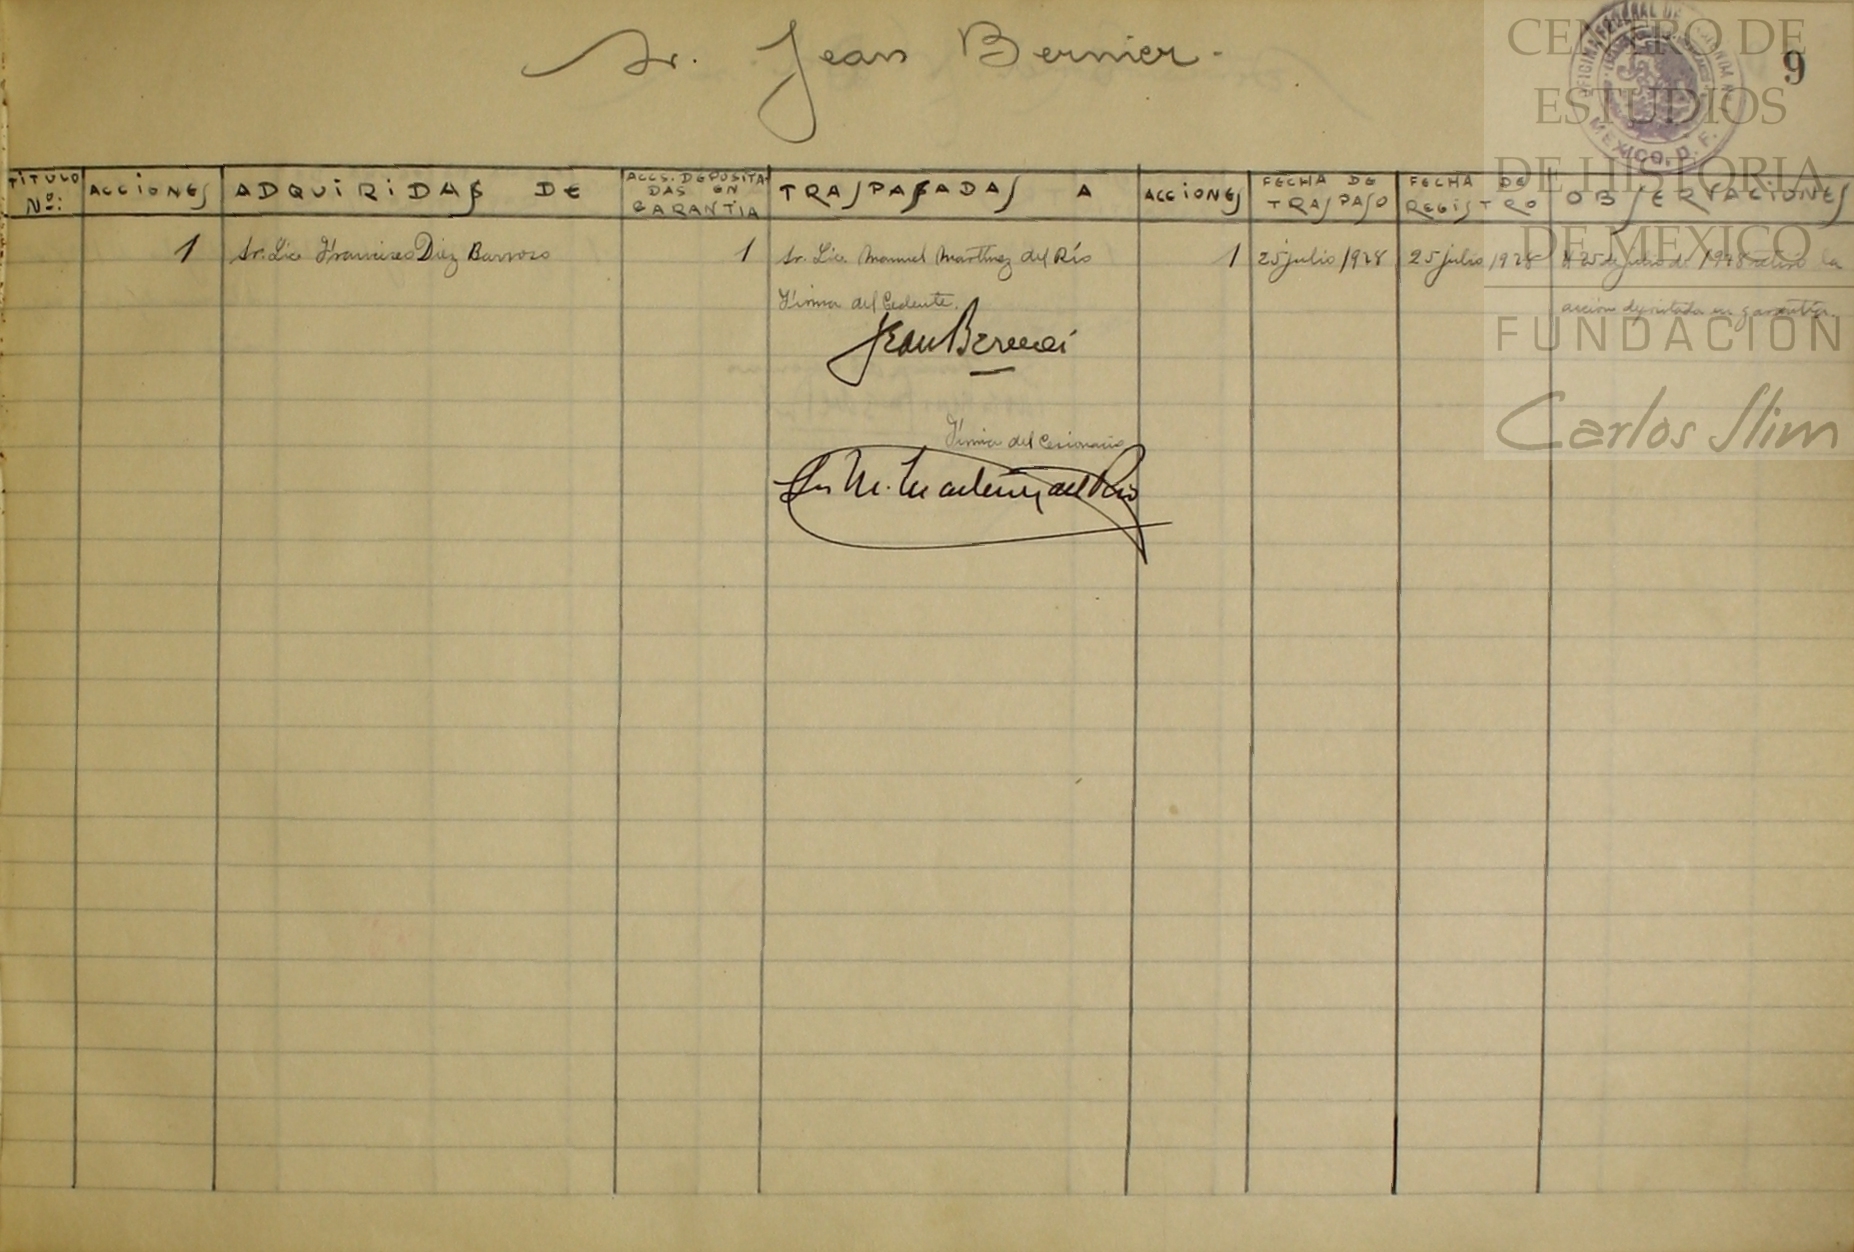 Sr. Jean Bernier.
9
CENTRO DE
ESTUDIOS
DE HISTORIA
DE MEXICO
FUNDACIÓN
Carlos Slim
MEXICO, D. F.
TíTULO Nº: ACCiONES ADQUiRiDAS DE ACCS. DEPOSITADAS EN GARANTIA TRASPASADAS A ACCiONES FECHA DE TRASPASO FECHA DE REGiSTRO OBSERVACiONES
1 Sr. Lic. Francisco Diez Barroso 1 Sr. Lic. Manuel Martínez del Río 1 25 julio/1928 25 julio/1928 25 de julio de 1928 retiró la
Firma del Cedente. acción depositada en garantía.
Jean Bernier
Firma del Cesionario
M. Martínez del Río